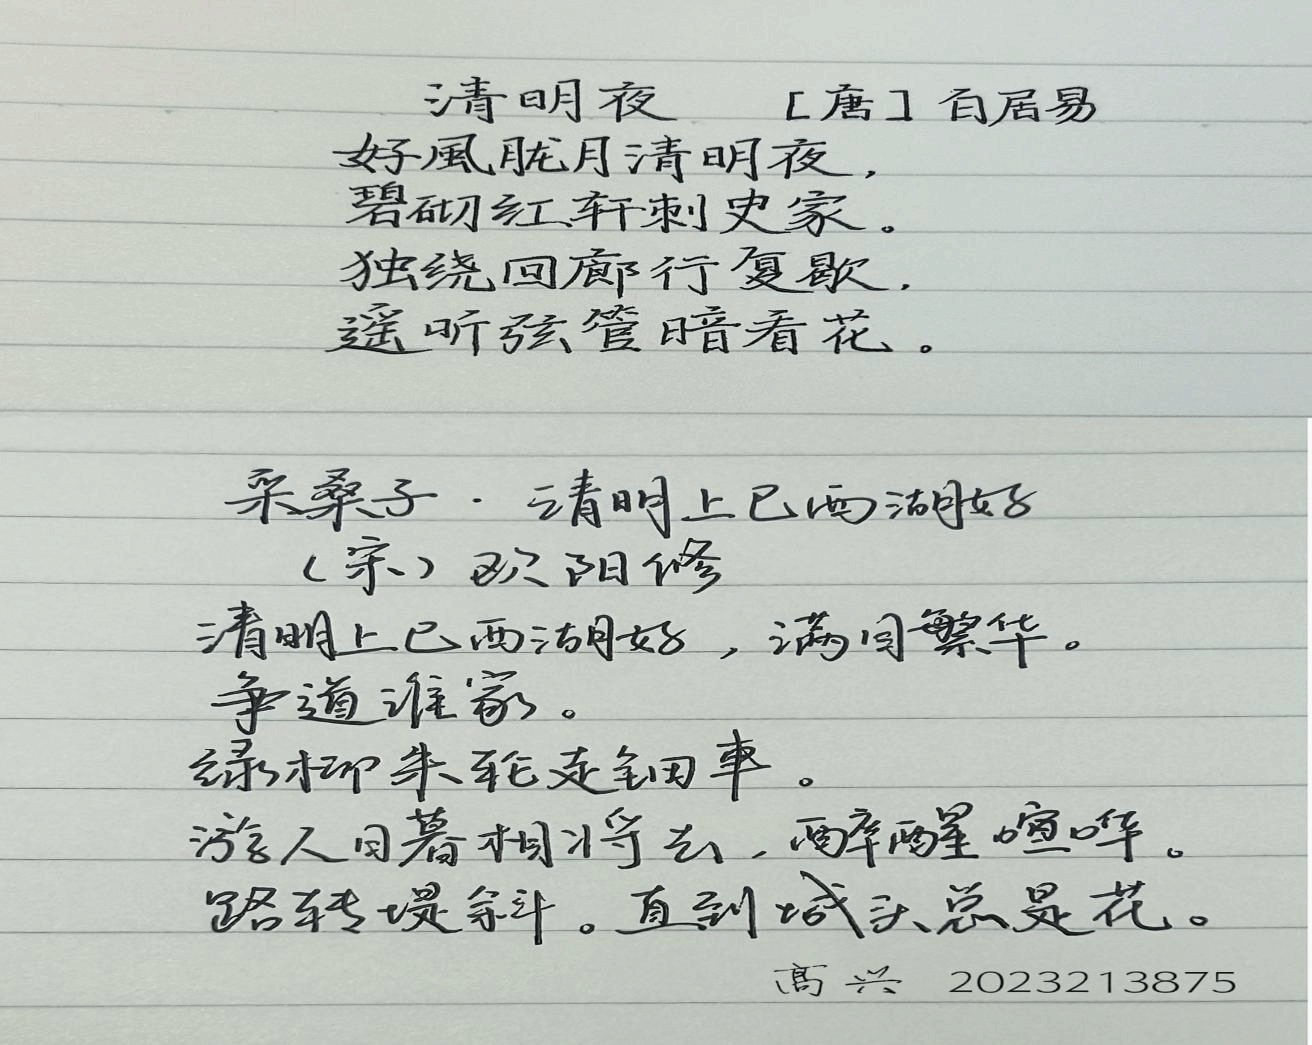 清明夜 [唐] 白居易
好風胧月清明夜，
碧砌红轩刺史家。
独绕回廊行复歇，
遥听弦管暗看花。
采桑子·清明上巳西湖好
（宋）欧阳修
清明上巳西湖好，满目繁华。
争道谁家。
绿柳朱轮走钿車。
游人日暮相将去，醉醒喧哗。
路转堤斜。直到城头总是花。
高兴 2023213875